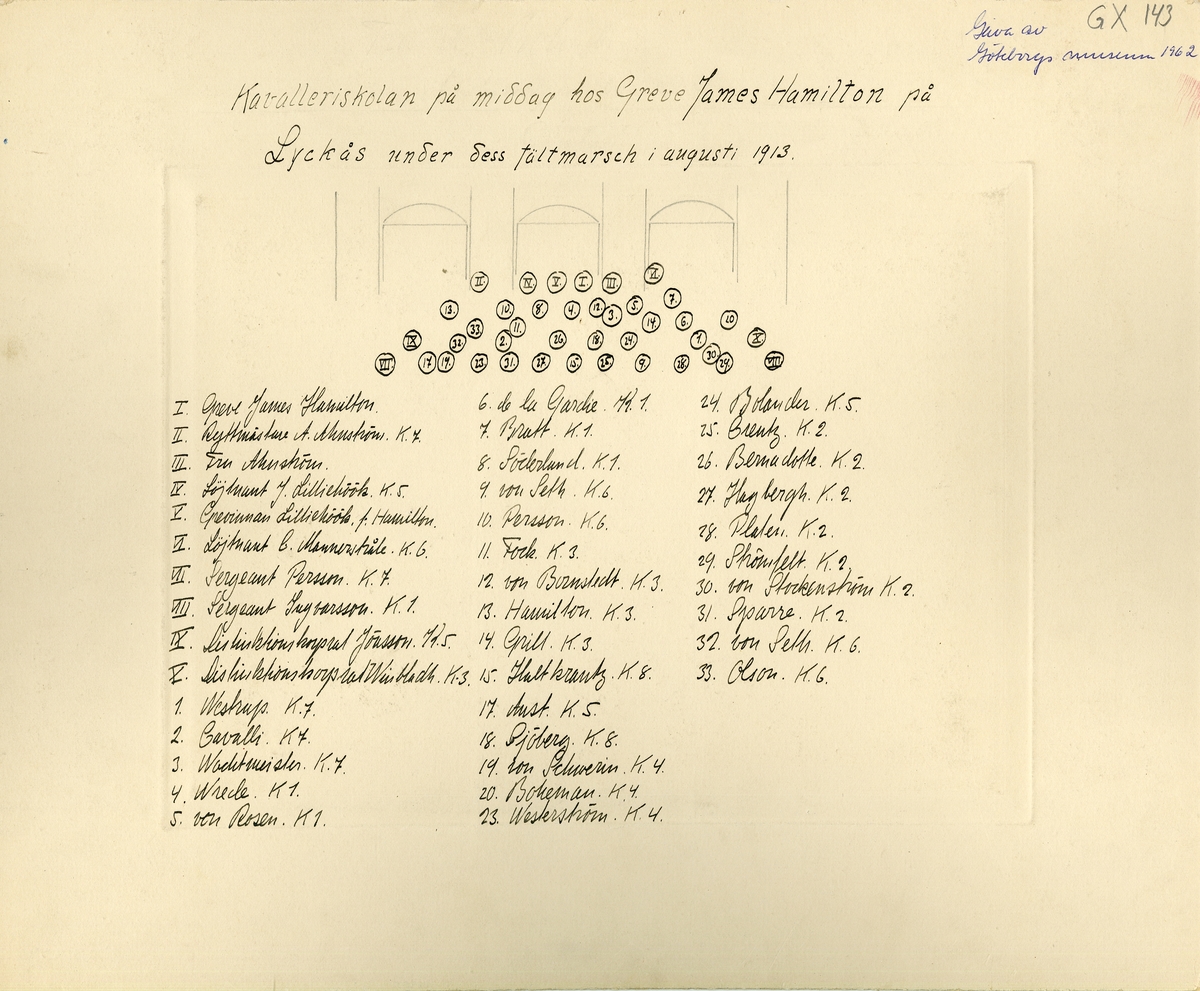 GX 143
Gåva av
Göteborgs museum 1962
Kavalleriskolan på middag hos Greve James Hamilton på
Lyckås under dess fältmarsch i augusti 1913.
II. IV. V. I. III. VI.
13. 10. 8. 4. 12. 3. 5. 7.
IX 32. 33. 2. 11. 26. 18. 24. 14. 6. 1. 20 X
VII. 17. 19. 23. 31. 27. 15. 25. 9. 28. 30. 29. VIII
I. Greve James Hamilton.
II. Ryttmästare A. Almström. K.7.
III. Fru Almström.
IV. Löjtnant J. Lilliehöök. K.5.
V. Grevinnan Lilliehöök. f. Hamilton.
VI. Löjtnant C. Mannerstråle. K.6.
VII. Sergeant Persson. K.7.
VIII. Sergeant Ingvarsson. K.1.
IX. Distinktionskorpral Jönsson. K.5.
X. Distinktionskorpral Winbladh. K.3.
1. Westrup. K.7.
2. Cavalli. K7.
3. Wachtmeister. K.7.
4. Wrede. K1.
5. von Rosen. K1.
6. de la Gardie. K.1.
7. Bratt. K.1.
8. Söderlund. K.1.
9. von Seth. K.6.
10. Persson. K.6.
11. Fock. K.3.
12. von Bornstedt. K.3.
13. Hamilton. K.3.
14. Grill. K.3.
15. Hultkrantz. K.8.
17. K.5.
18. Sjöberg. K.8.
19. von Schwerin. K.4.
20. Boheman. K.4.
23. Westerström. K.4.
24. Bolander. K.5.
25. Creutz. K.2.
26. Bernadotte. K.2.
27. Hagbergh. K.2.
28. Platen. K.2.
29. Strömfelt. K.2.
30. von Stockenström K.2.
31. Sparre. K.2.
32. von Seth. K.6.
33. Olson. K.6.